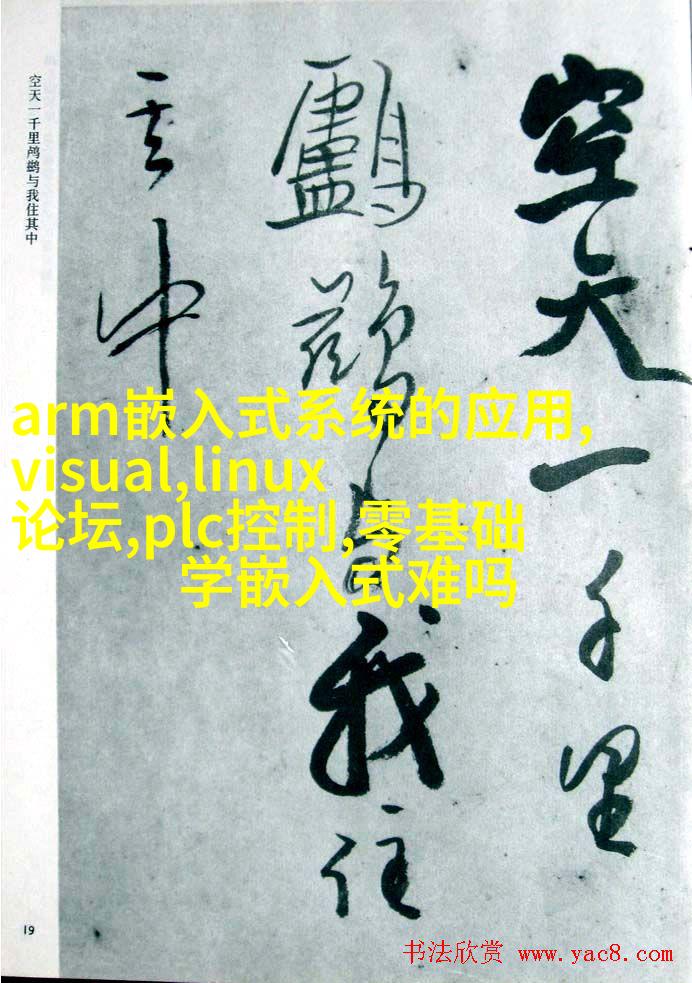 空天一千里
鸕鷀与我住
其中
空天一千里鸬鹚与我住其中
arm嵌入式系统的应用,
visual,linux
论坛,plc控制,零基础
学嵌入式难吗
19
书法欣赏 www.yac8.com